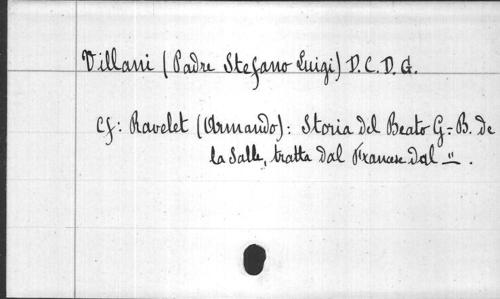 Villani (Padre Stefano Luigi) D. C. D. G.
Cf: Ravelet (Armando): Storia del Beato G.-B. de
la Salle, tratta dal Francese dal " .